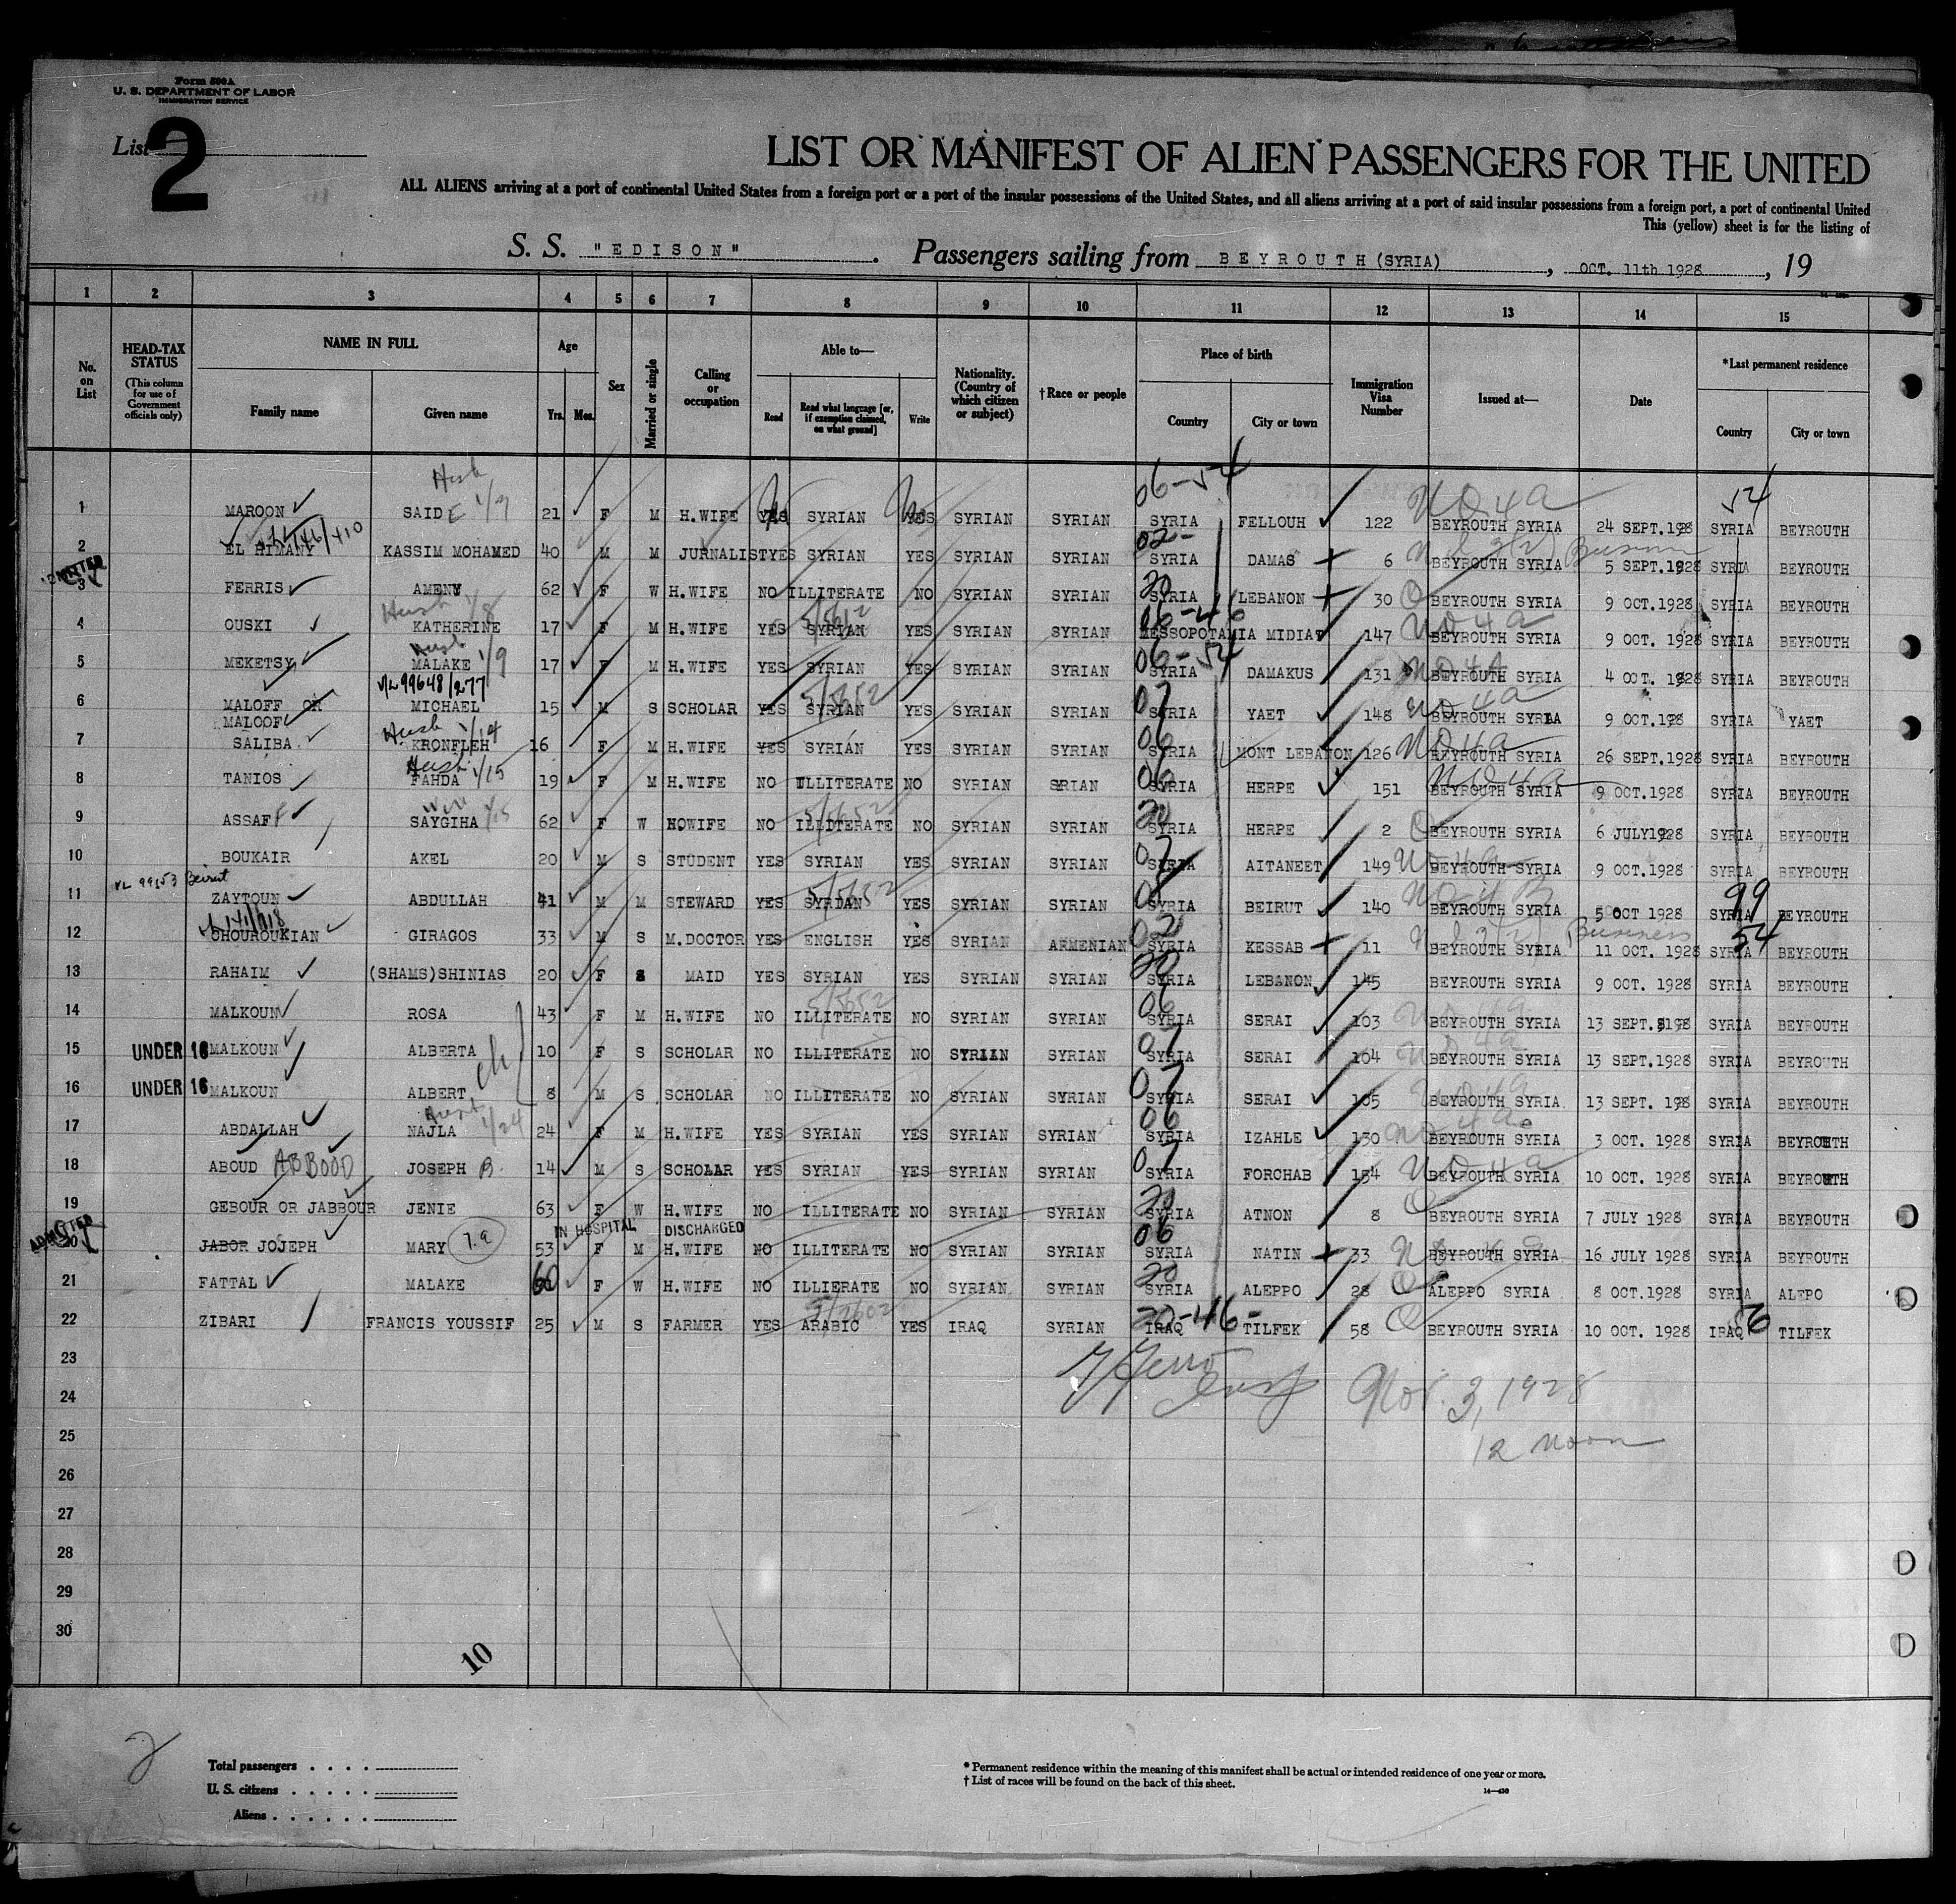 Form 500 A
U. S. DEPARTMENT OF LABOR
IMMIGRATION SERVICE
List 2
LIST OR MANIFEST OF ALIEN PASSENGERS FOR THE UNITED
ALL ALIENS arriving at a port of continental United States from a foreign port or a port of the insular possessions of the United States, and all aliens arriving at a port of said insular possessions from a foreign port, a port of continental United
This (yellow) sheet is for the listing of
S. S. "EDISON". Passengers sailing from BEYROUTH (SYRIA), OCT. 11th 1928, 19
1 2 3 4 5 6 7 8 9 10 11 12 13 14 15
No. on List
HEAD-TAX STATUS (This column for use of Government officials only)
NAME IN FULL Family name Given name
Age Yrs. Mos.
Sex
Married or single
Calling or occupation
Able to— Read Read what language [or, if exemption claimed, on what ground] Write
Nationality. (Country of which citizen or subject)
†Race or people
Place of birth Country City or town
Immigration Visa Number
Issued at—
Date
*Last permanent residence Country City or town
Husb 06-54 NQ4a 54
1 MAROON SAIDE 1/7 21 F M H.WIFE YES SYRIAN YES SYRIAN SYRIAN SYRIA FELLOUH 122 BEYROUTH SYRIA 24 SEPT.198 SYRIA BEYROUTH
2 EL HIMANY KASSIM MOHAMED 40 M M JURNALIST YES SYRIAN YES SYRIAN SYRIAN 02- SYRIA DAMAS 6 BEYROUTH SYRIA 5 SEPT.1928 SYRIA BEYROUTH
ADMITTED
3 FERRIS AMENY 62 F W H.WIFE NO ILLITERATE NO SYRIAN SYRIAN 20 SYRIA LEBANON 30 BEYROUTH SYRIA 9 OCT.1928 SYRIA BEYROUTH
Husb 1/8 5/5612 06-46 NQ4a
4 OUSKI KATHERINE 17 F M H.WIFE YES SYRIAN YES SYRIAN SYRIAN MESSOPOTAMIA MIDIAT 147 BEYROUTH SYRIA 9 OCT. 1928 SYRIA BEYROUTH
Husb 1/9 06-54 NQ4A
5 MEKETSY MALAKE 17 F M H.WIFE YES SYRIAN YES SYRIAN SYRIAN SYRIA DAMAKUS 131 BEYROUTH SYRIA 4 OCT. 1928 SYRIA BEYROUTH
VL 99648/277
6 MALOFF OR MICHAEL 15 M S SCHOLAR YES SYRIAN YES SYRIAN SYRIAN 07 SYRIA YAET 148 BEYROUTH SYRIA 9 OCT.198 SYRIA YAET
MALOOF
Husb 1/14
7 SALIBA KRONFLEH 16 F M H.WIFE YES SYRIAN YES SYRIAN SYRIAN 06 SYRIA MONT LEBANON 126 BEYROUTH SYRIA 26 SEPT.1928 SYRIA BEYROUTH
Husb 1/15
8 TANIOS FAHDA 19 F M H.WIFE NO ILLITERATE NO SYRIAN SRIAN 06 SYRIA HERPE 151 BEYROUTH SYRIA 9 OCT.1928 SYRIA BEYROUTH
9 ASSAFF SAYGIHA 62 F W HOWIFE NO ILLITERATE NO SYRIAN SYRIAN 20 SYRIA HERPE 2 BEYROUTH SYRIA 6 JULY1928 SYRIA BEYROUTH
10 BOUKAIR AKEL 20 M S STUDENT YES SYRIAN YES SYRIAN SYRIAN 07 SYRIA AITANEET 149 BEYROUTH SYRIA 9 OCT.1928 SYRIA BEYROUTH
VL 99153 Beirut
11 ZAYTOUN ABDULLAH 41 M M STEWARD YES SYRIAN YES SYRIAN SYRIAN SYRIA BEIRUT 140 BEYROUTH SYRIA 5 OCT 1928 99 SYRIA BEYROUTH
12 CHOUROUKIAN GIRAGOS 33 M S M.DOCTOR YES ENGLISH YES SYRIAN ARMENIAN 02 SYRIA KESSAB 11 BEYROUTH SYRIA Business 11 OCT. 1928 54 SYRIA BEYROUTH
13 RAHAIM (SHAMS)SHINIAS 20 F S MAID YES SYRIAN YES SYRIAN SYRIAN 20 SYRIA LEBANON 145 BEYROUTH SYRIA 9 OCT. 1928 SYRIA BEYROUTH
14 MALKOUN ROSA 43 F M H.WIFE NO ILLITERATE NO SYRIAN SYRIAN 06 SYRIA SERAI 103 BEYROUTH SYRIA 13 SEPT.8198 SYRIA BEYROUTH
15 UNDER 16 MALKOUN ALBERTA ch 10 F S SCHOLAR NO ILLITERATE NO SYRIAN SYRIAN 07 SYRIA SERAI 104 BEYROUTH SYRIA 13 SEPT.1928 SYRIA BEYROUTH
16 UNDER 16 MALKOUN ALBERT 8 M S SCHOLAR NO ILLITERATE NO SYRIAN SYRIAN 07 SYRIA SERAI 105 BEYROUTH SYRIA 13 SEPT. 198 SYRIA BEYROUTH
Husb 1/24
17 ABDALLAH NAJLA 24 F M H.WIFE YES SYRIAN YES SYRIAN SYRIAN 06 SYRIA IZAHLE 130 BEYROUTH SYRIA 3 OCT. 1928 SYRIA BEYROUTH
18 ABOUD ABBOOD JOSEPH B. 14 M S SCHOLAR YES SYRIAN YES SYRIAN SYRIAN 07 SYRIA FORCHAB 154 BEYROUTH SYRIA 10 OCT. 1928 SYRIA BEYROUTH
19 GEBOUR OR JABBOUR JENIE 63 F W H.WIFE NO ILLITERATE NO SYRIAN SYRIAN 20 SYRIA ATNON 8 BEYROUTH SYRIA 7 JULY 1928 SYRIA BEYROUTH
ADMITTED IN HOSPITAL DISCHARGED
20 JABOR JOJEPH MARY 53 F M H.WIFE NO ILLITERATE NO SYRIAN SYRIAN 06 SYRIA NATIN 33 BEYROUTH SYRIA 16 JULY 1928 SYRIA BEYROUTH
21 FATTAL MALAKE 60 F W H.WIFE NO ILLIERATE NO SYRIAN SYRIAN 20 SYRIA ALEPPO 28 ALEPPO SYRIA 8 OCT.1928 SYRIA ALEPO
22 ZIBARI FRANCIS YOUSSIF 25 M S FARMER YES ARABIC YES IRAQ SYRIAN 20-46- IRAQ TILFEK 58 BEYROUTH SYRIA 10 OCT. 1928 IRAQ TILFEK
23
24 Nov. 3, 1928
25 12 Noon
26
27
28
29
30
10
2
Total passengers
U. S. citizens
Aliens
* Permanent residence within the meaning of this manifest shall be actual or intended residence of one year or more.
† List of races will be found on the back of this sheet.
14—430